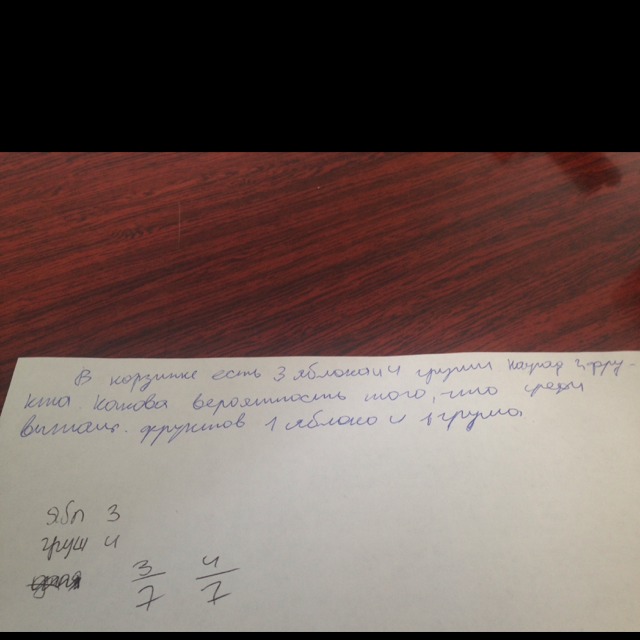 В корзинке есть 3 яблока и 4 груши наугад 2 фру-
кта какова вероятность того, что среди
вытащ. фруктов 1 яблоко и 1 груша.
ябл 3
груш 4
3/7 4/7